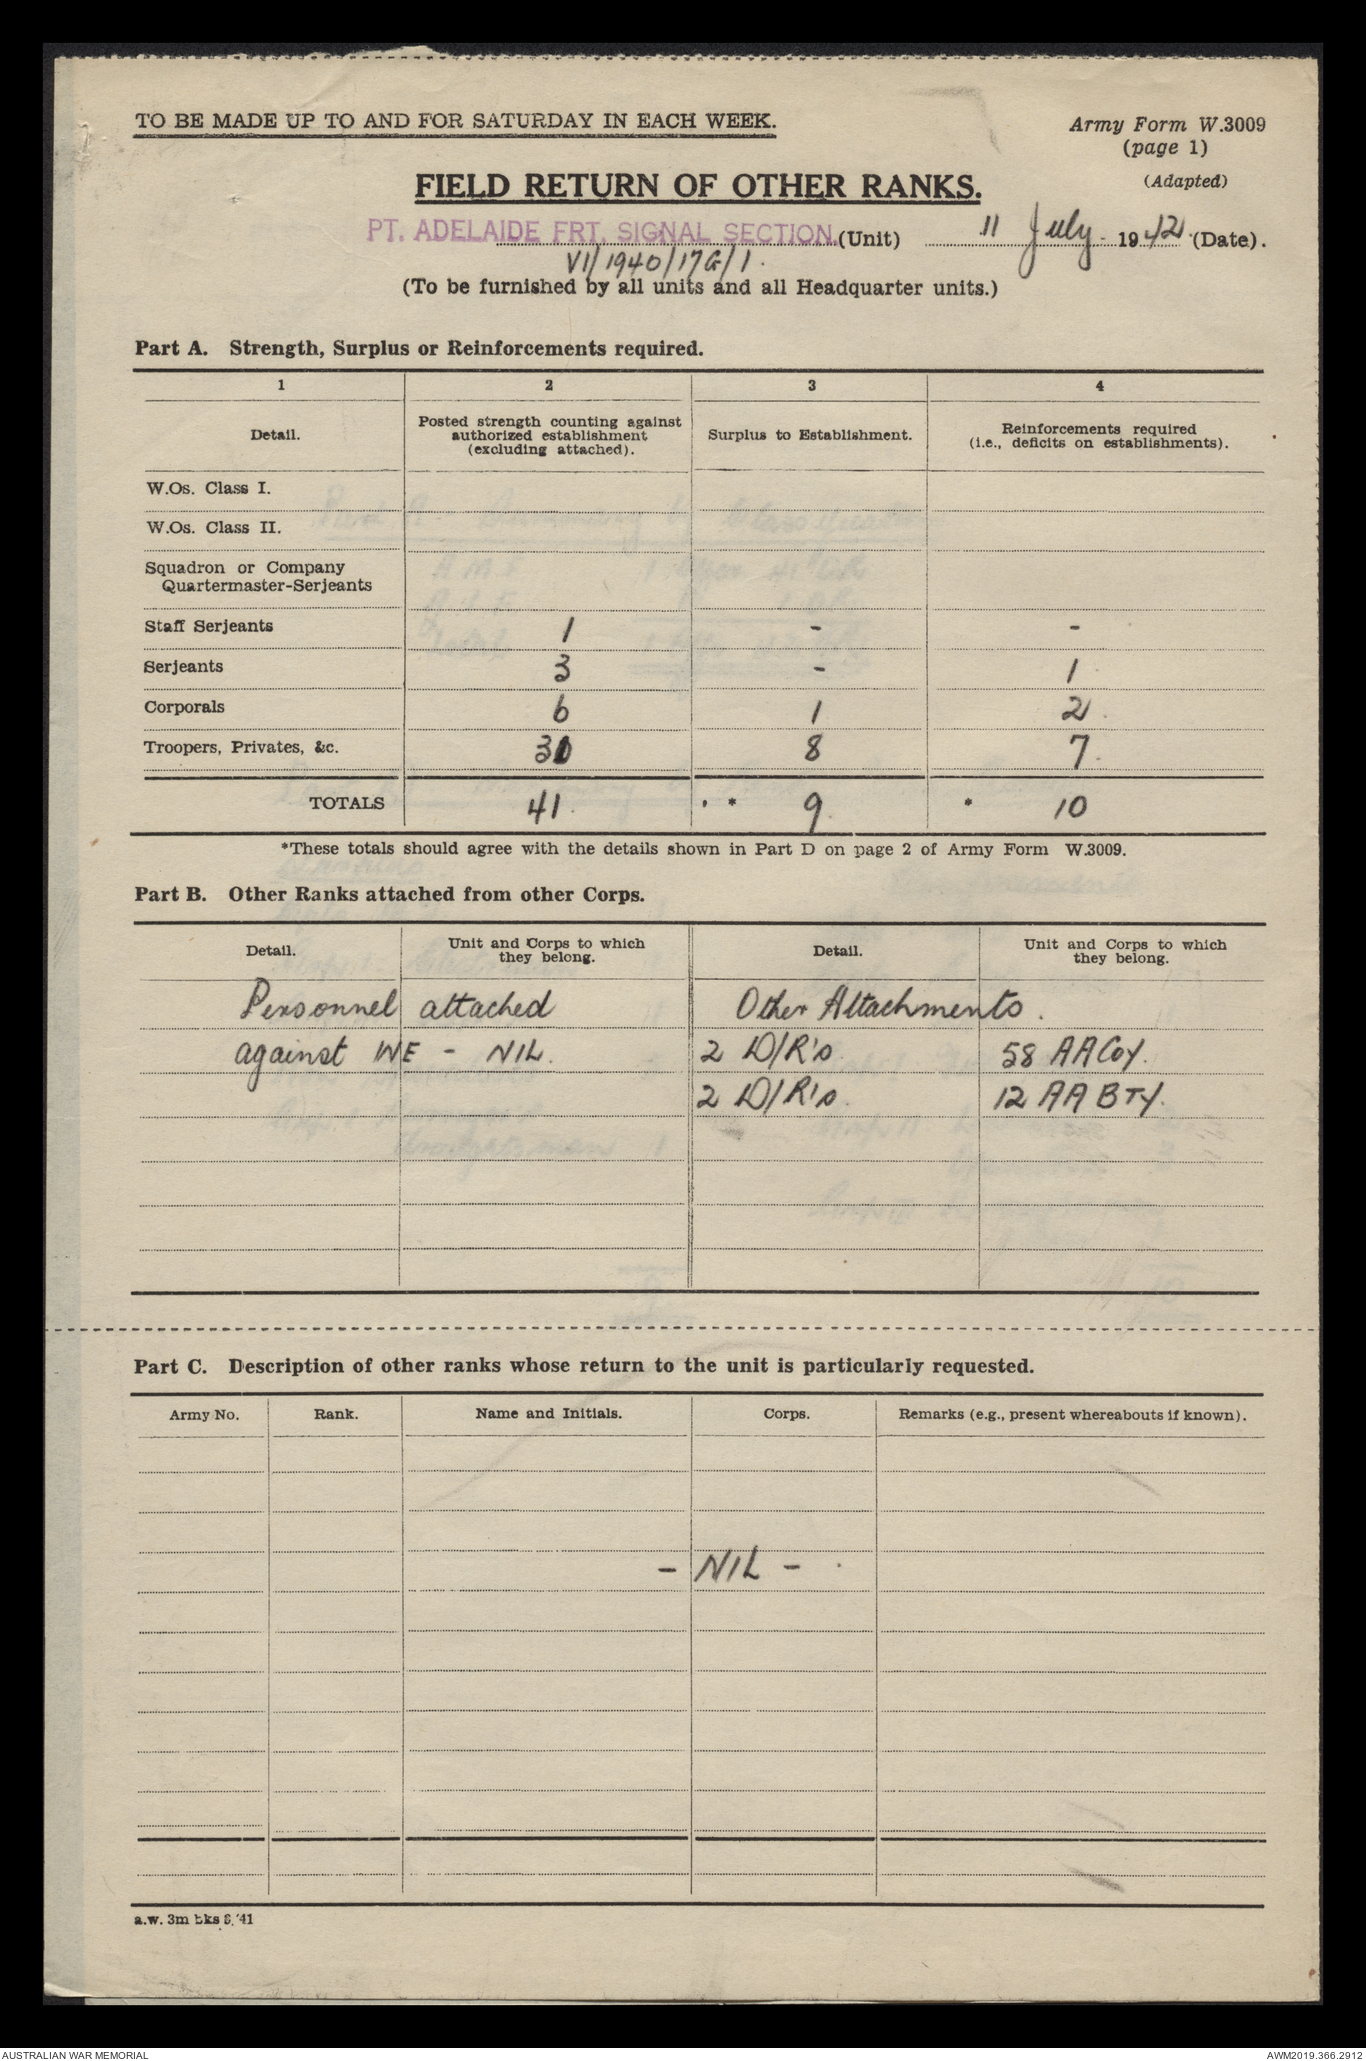 TO BE MADE UP TO AND FOR SATURDAY IN EACH WEEK.
Army Form W.3009
(page 1)
(Adapted)
FIELD RETURN OF OTHER RANKS.
PT. ADELAIDE FRT. SIGNAL SECTION. (Unit) 11 July 1942. (Date).
VI/1940/17G/1.
(To be furnished by all units and all Headquarter units.)
Part A. Strength, Surplus or Reinforcements required.
1 2 3 4
Detail. Posted strength counting against authorized establishment (excluding attached). Surplus to Establishment. Reinforcements required (i.e., deficits on establishments).
W.Os. Class I.
W.Os. Class II.
Squadron or Company
Quartermaster-Serjeants
Staff Serjeants 1 - -
Serjeants 3 - 1
Corporals 6 1 2
Troopers, Privates, &c. 31 8 7
TOTALS 41 * 9 * 10
*These totals should agree with the details shown in Part D on page 2 of Army Form W.3009.
Part B. Other Ranks attached from other Corps.
Detail. Unit and Corps to which they belong. Detail. Unit and Corps to which they belong.
Personnel attached Other Attachments.
against WE - NIL. 2 D/R's 58 AA Coy.
2 D/R's. 12 AA BTY.
Part C. Description of other ranks whose return to the unit is particularly requested.
Army No. Rank. Name and Initials. Corps. Remarks (e.g., present whereabouts if known).
- NIL -
a.w. 3m bks 8.'41
AUSTRALIAN WAR MEMORIAL
AWM2019.366.2912